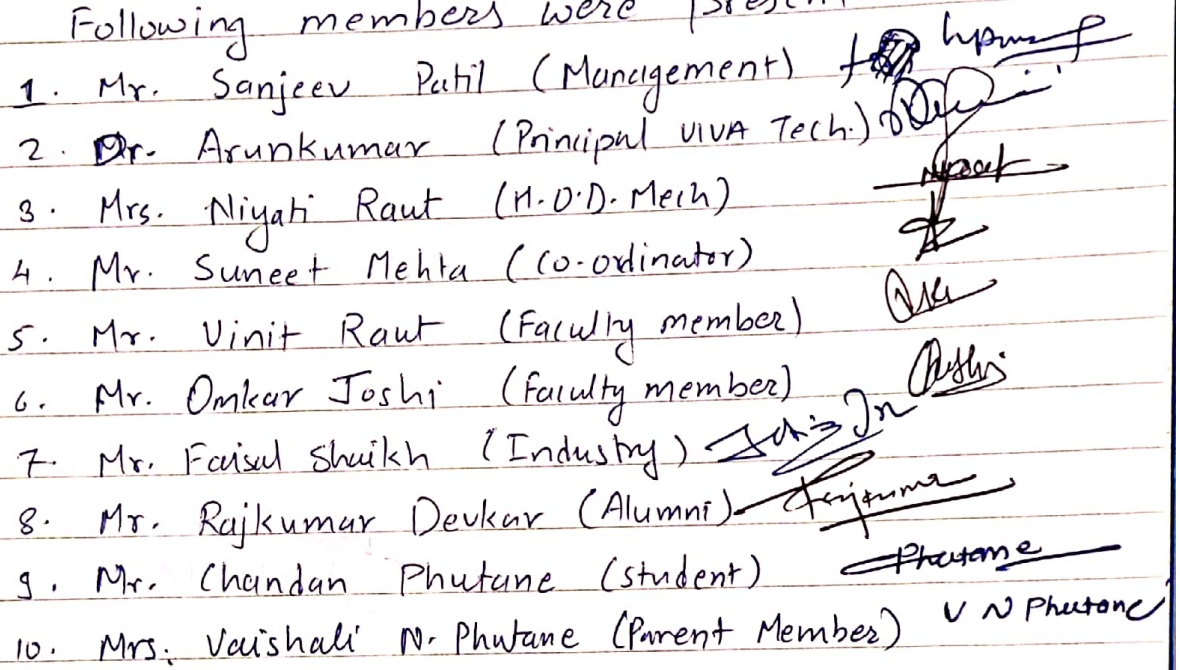 Following members were present
1. Mr. Sanjeev Patil (Management)
2. Dr. Arunkumar (Principal VIVA Tech.)
3. Mrs. Niyati Raut (H.O.D. Mech)
4. Mr. Suneet Mehta (Co-ordinator)
5. Mr. Vinit Raut (Faculty member)
6. Mr. Omkar Joshi (Faculty member)
7. Mr. Faisal Shaikh (Industry)
8. Mr. Rajkumar Devkar (Alumni) Rajkumar
9. Mr. Chandan Phutane (student) Phutane
10. Mrs. Vaishali N. Phutane (Parent Member) V N Phutane